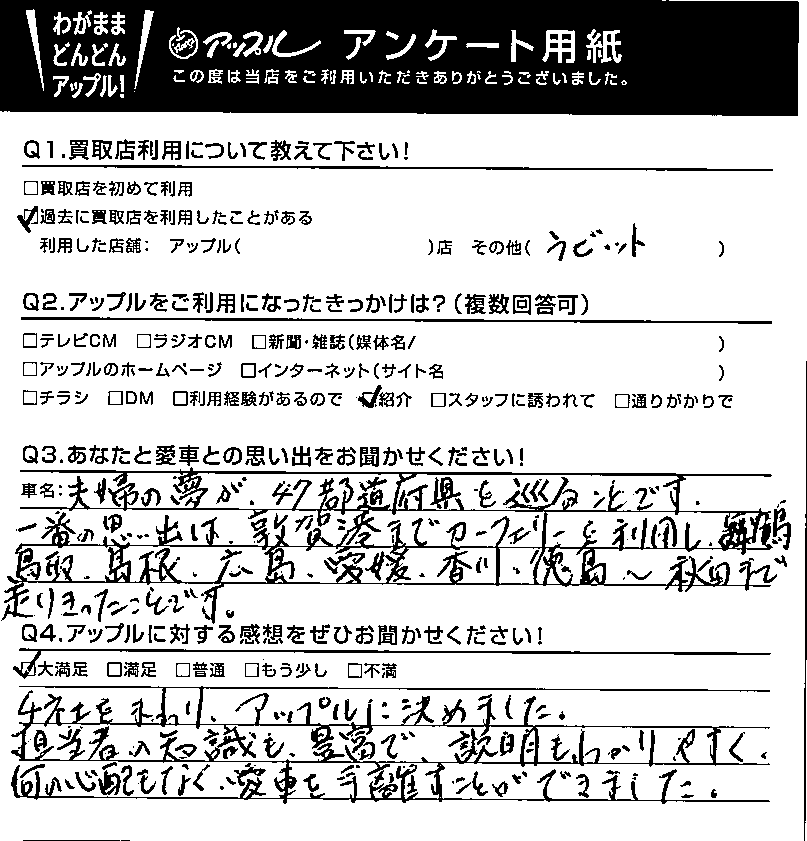 わがまま
どんどん
アップル!
アップル アンケート用紙
この度は当店をご利用いただきありがとうございました。
Q1.買取店利用について教えて下さい!
□買取店を初めて利用
☑過去に買取店を利用したことがある
利用した店舗: アップル( )店 その他( うびット )
Q2.アップルをご利用になったきっかけは?(複数回答可)
□テレビCM □ラジオCM □新聞・雑誌(媒体名/ )
□アップルのホームページ □インターネット(サイト名 )
□チラシ □DM □利用経験があるので ☑紹介 □スタッフに誘われて □通りがかりで
Q3.あなたと愛車との思い出をお聞かせください!
車名:夫婦の夢が、47都道府県を巡ることです。
一番の思い出は、敦賀港までカーフェリーを利用し、舞鶴
鳥取、島根、広島、愛媛、香川、徳島~秋田まで
走りきったことです。
Q4.アップルに対する感想をぜひお聞かせください!
☑大満足 □満足 □普通 □もう少し □不満
4社をまわり、アップルに決めました。
担当者の知識も、豊富で、説明もわかりやすく、
何の心配もなく、愛車を手離すことができました。